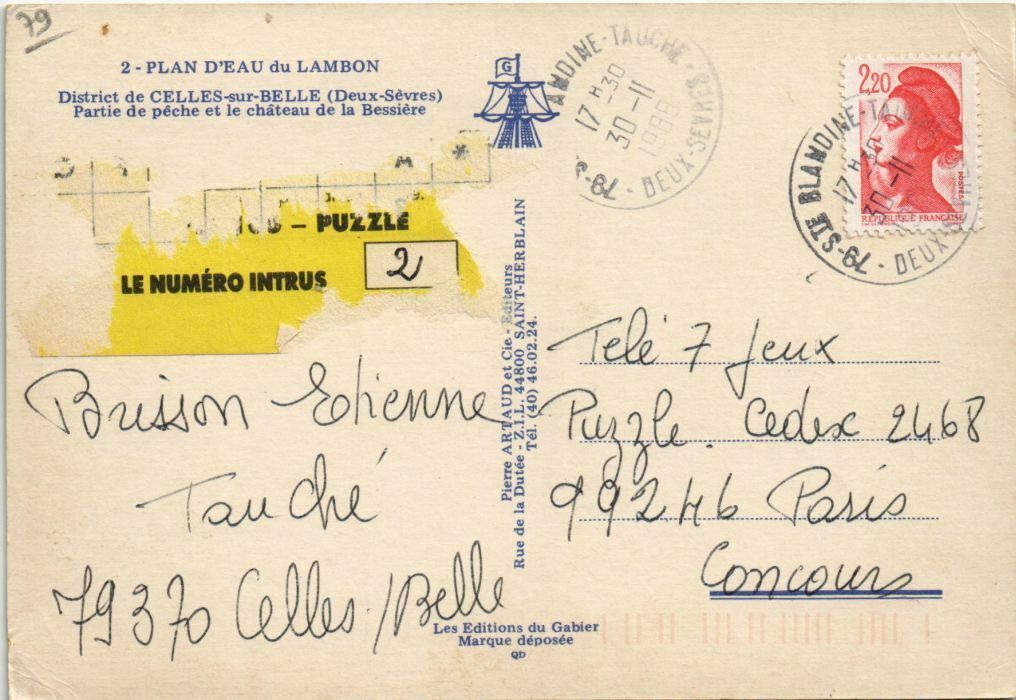 79
2 - PLAN D'EAU du LAMBON
District de CELLES-sur-BELLE (Deux-Sèvres)
Partie de pêche et le château de la Bessière
G
ANDINE-TAUCHE - 79-S DEUX-SEVRES
17 H 30
30-11
79-STE BLANDINE-TAUCHE - DEUX-SEVRES
17 H 30
30-11
2,20
POSTES
REPUBLIQUE FRANÇAISE
- PUZZLE
LE NUMÉRO INTRUS 2
Brisson Etienne
Tauché
79370 Celles/Belle
Pierre ARTAUD et Cie - Editeurs
Rue de la Dutée - Z.I.L. 44800 SAINT-HERBLAIN
Tél. (40) 46.02.24.
Télé 7 Jeux
Puzzle. Cedex 2468
99246 Paris
Concours
Les Editions du Gabier
Marque déposée
QD